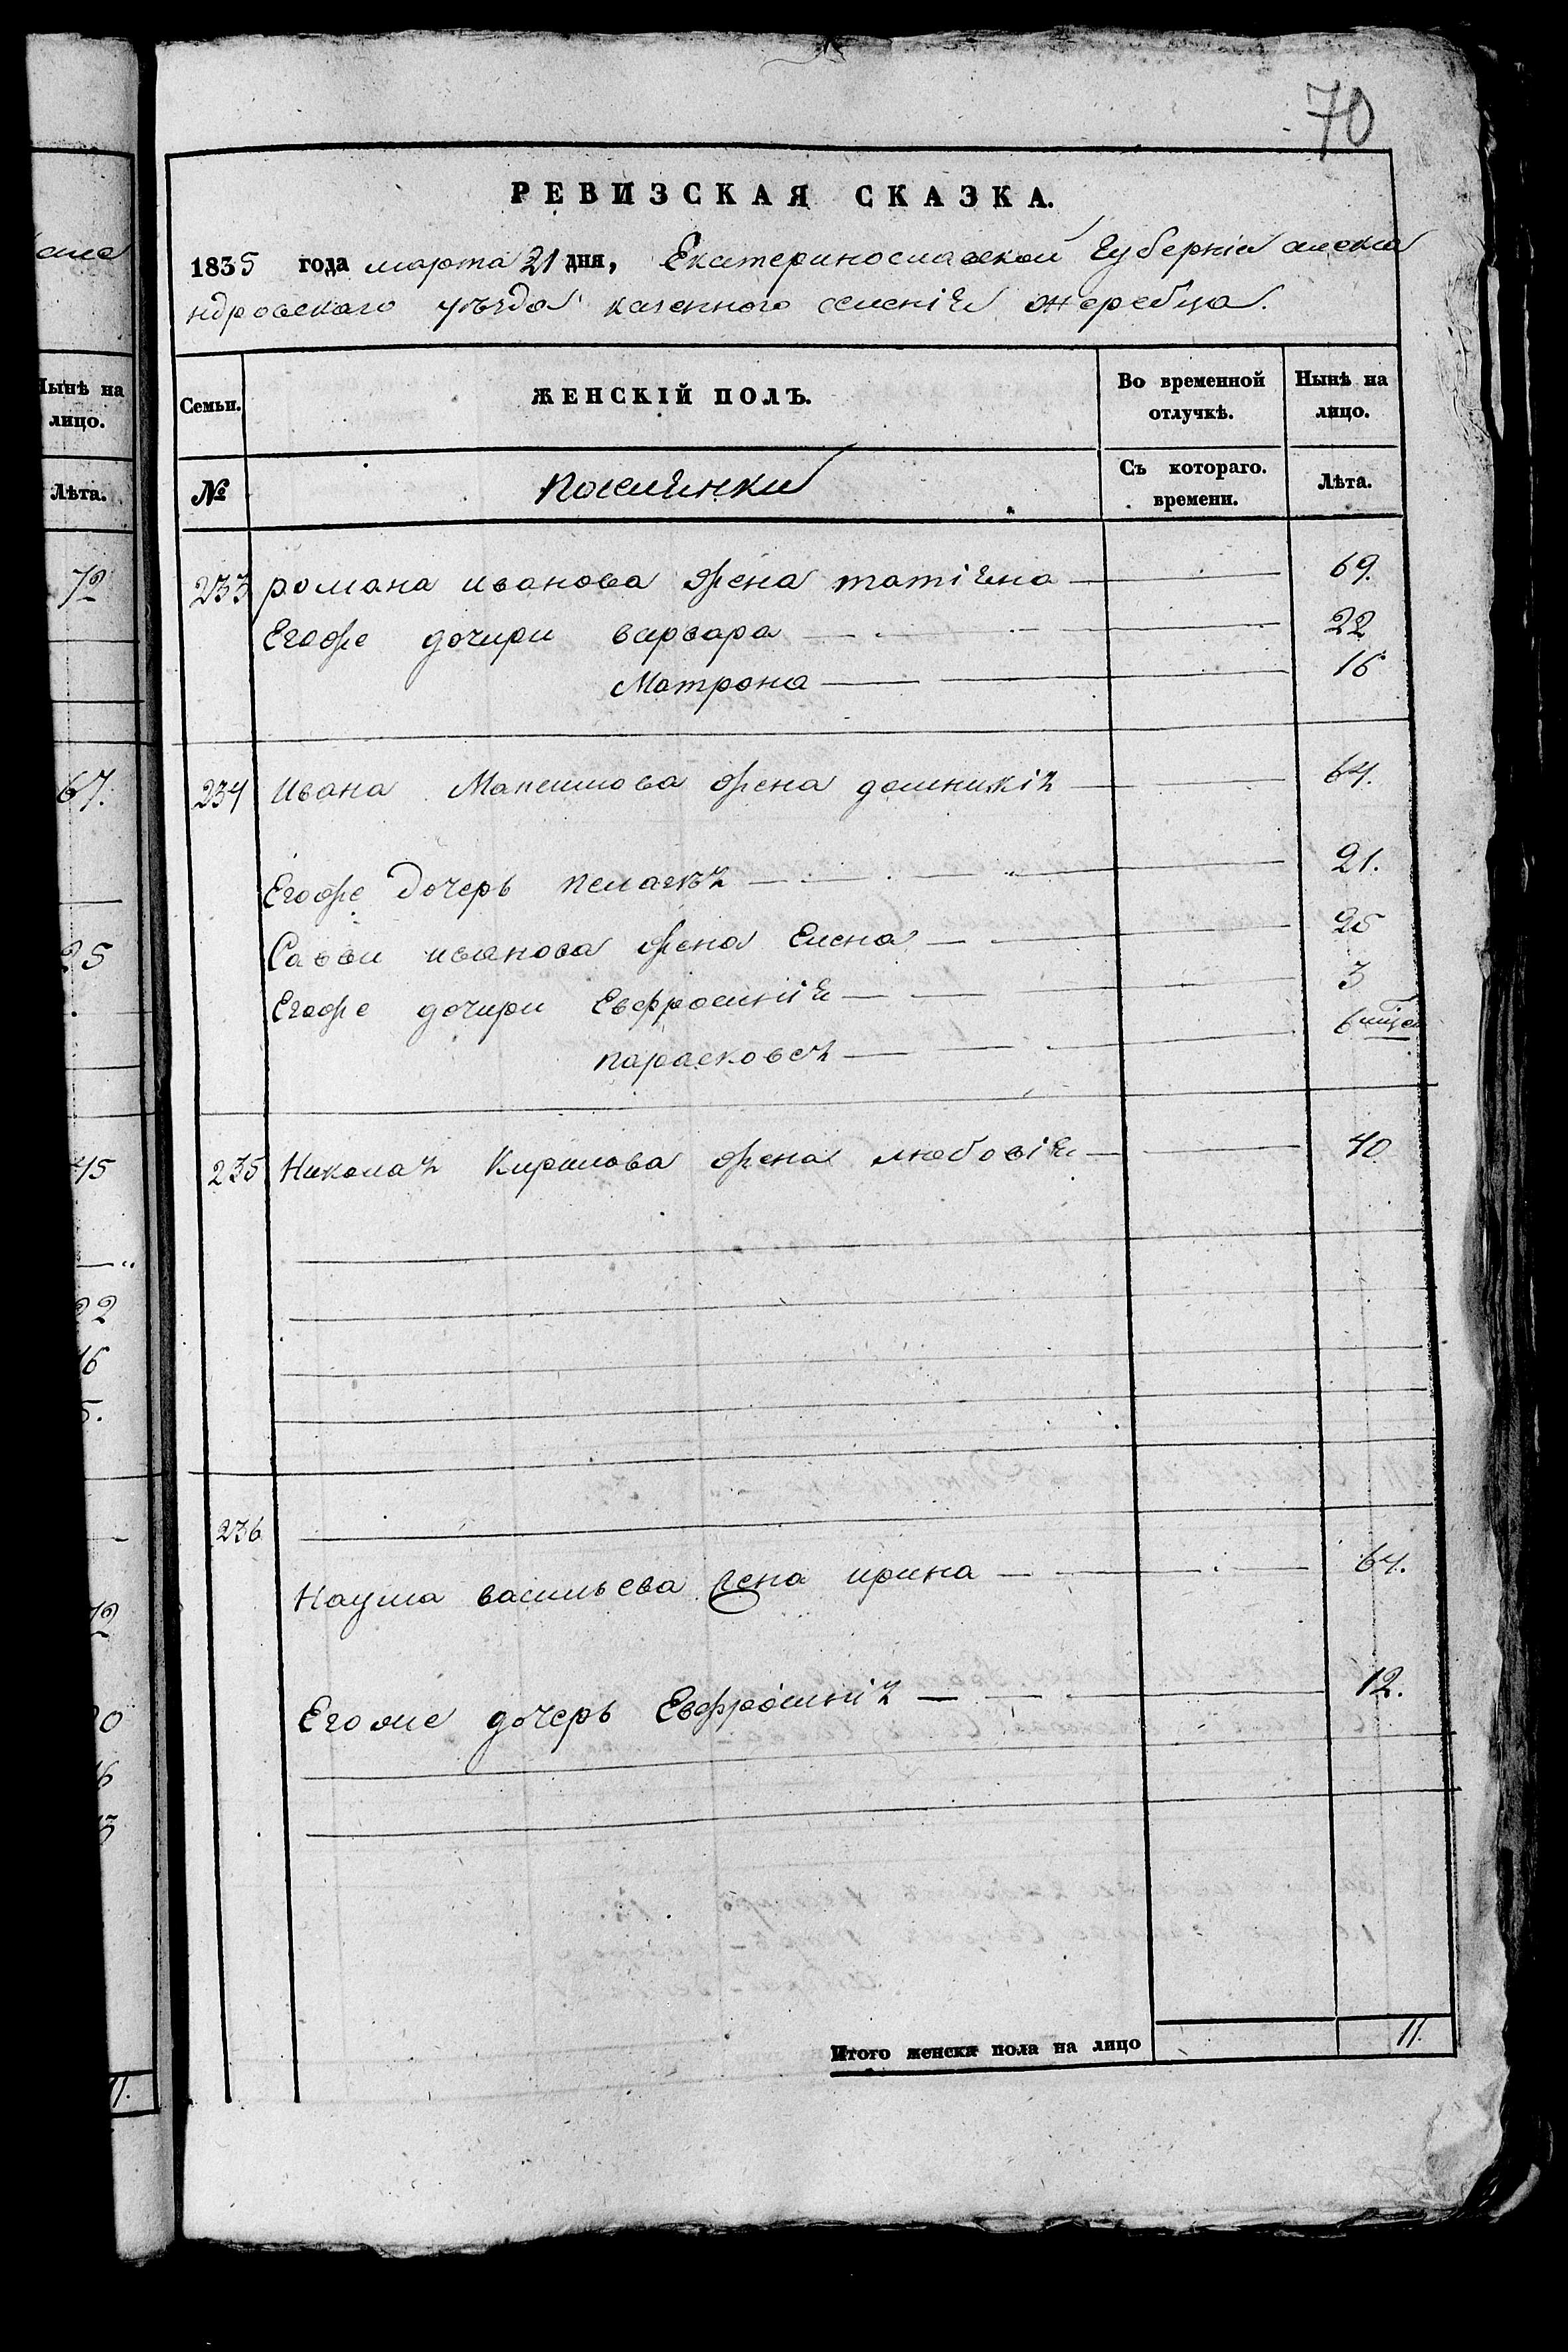 70
РЕВИЗСКАЯ СКАЗКА.
1835 года марта 21 дня, Екатеринославской Губерніи алекса
ндровского уѣзда казенного селенія жеребца.
Семьи. ЖЕНСКІЙ ПОЛЪ. Во временной отлучкѣ. Нынѣ на лицо.
№ поселянки Съ котораго. времени. Лѣта.
233 романа иванова жена татіяна 69.
Егоже дочири варвара 22
Матрона 16
234 Ивана жена домникія 64.
Егоже дочерь пелагѣя 21.
Саввы иванова жена Елена 25
Егоже дочири Евфросинія 3
парасковея 6
235 Николая Кирилова жена любовія 40
236
Наума васильева жена ирина 64.
Егоже дочерь Евфросинія 12.
Итого женска пола на лицо 11.
Нынѣ на
лицо.
Лѣта.
72
67.
25
45
22
16
5.
11.